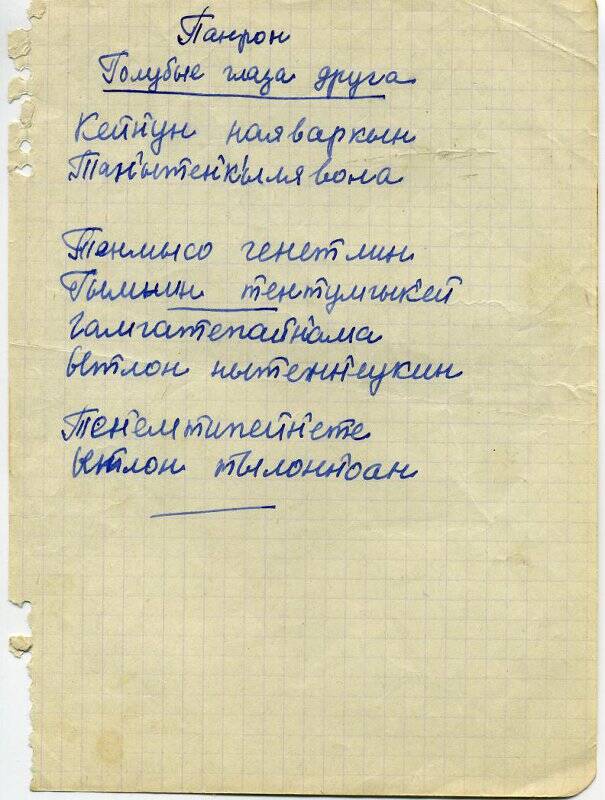 Панрон
Голубые глаза друга
Кейӈун наяваркын
Таӈ'ытенӄылявола
Танмысо генетлин
Гымнин тентумгыкей
Гамгатепайӈама
Ытлон нытенӈеукин
Тенемтипейӈете
Ытлон тылонӈоан